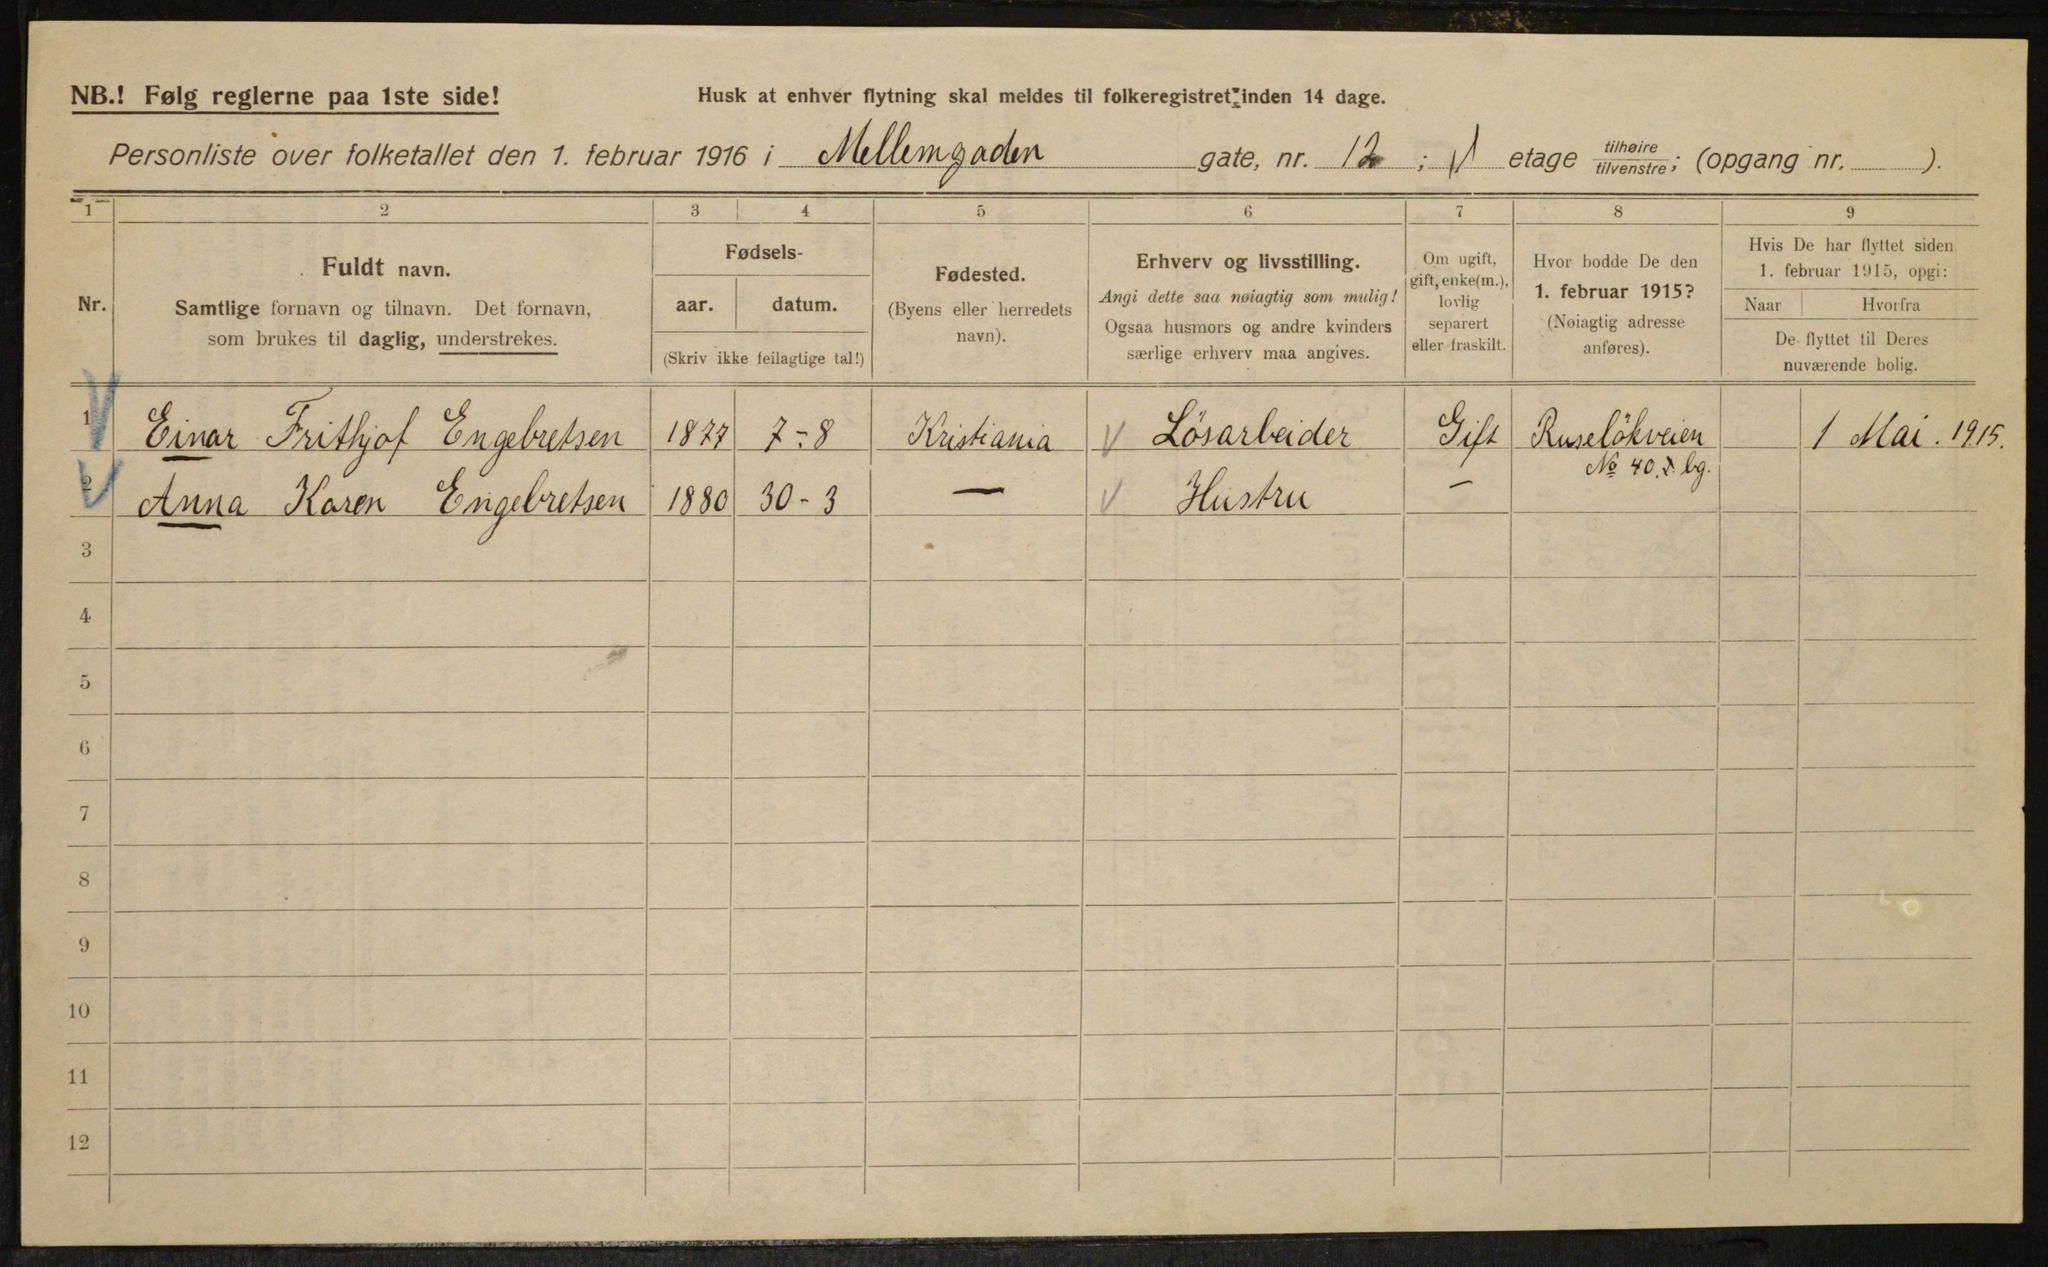 NB.! Følg reglerne paa 1ste side!
Husk at enhver flytning skal meldes til folkeregistret inden 14 dage.
Personliste over folketallet den 1. februar 1916 i Mellemgaden gate, nr. 12 ; etage tilhøire/tilvenstre; (opgang nr. ).
1 2 3 4 5 6 7 8 9
Nr.
Fuldt navn.
Samtlige fornavn og tilnavn. Det fornavn,
som brukes til daglig, understrekes.
Fødsels-
aar. datum.
(Skriv ikke feilagtige tal!)
Fødested.
(Byens eller herredets
navn).
Erhverv og livsstilling.
Angi dette saa nøiagtig som mulig!
Ogsaa husmors og andre kvinders
særlige erhverv maa angives.
Om ugift,
gift, enke(m.),
lovlig
separert
eller fraskilt.
Hvor bodde De den
1. februar 1915?
(Nøiagtig adresse
anføres).
Hvis De har flyttet siden
1. februar 1915, opgi:
Naar Hvorfra
De flyttet til Deres
nuværende bolig.
1 Einar Frithjof Engebretsen 1877 7-8 Kristiania Lösarbeider Gift Ruselökveien 1 Mai. 1915.
No 40. bg.
2 Anna Karen Engebretsen 1880 30-3 — Hustru —
3
4
5
6
7
8
9
10
11
12